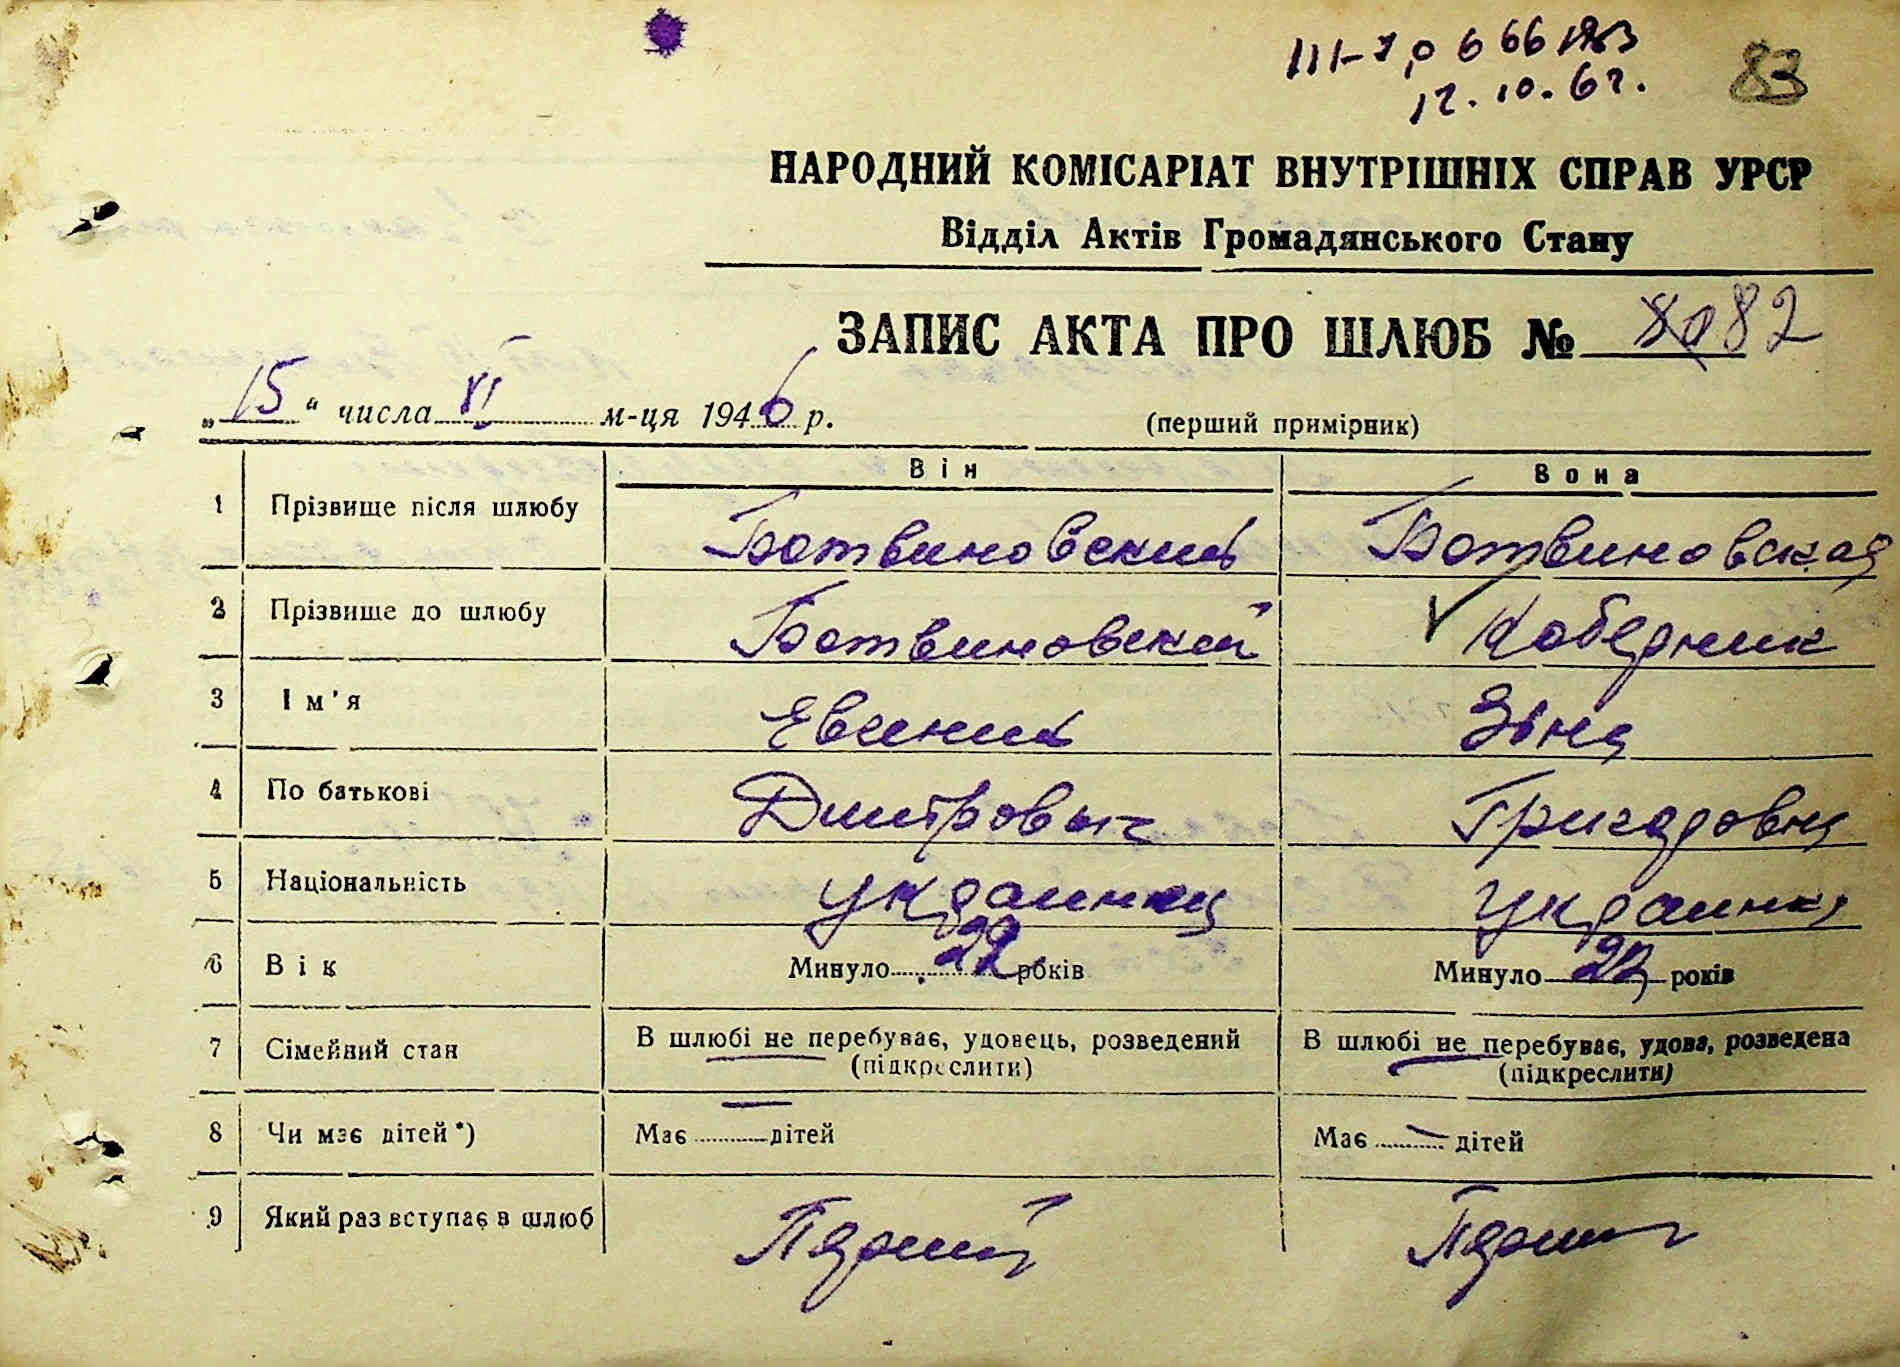 83
12.10.62.
НАРОДНИЙ КОМІСАРІАТ ВНУТРІШНІХ СПРАВ УРСР
Відділ Актів Громадянського Стану
ЗАПИС АКТА ПРО ШЛЮБ № 82
„15“ числа VI м-ця 1946 р. (перший примірник)
Він Вона
1 Прізвище після шлюбу Ботвиновский Ботвиновская
2 Прізвище до шлюбу Ботвиновский Коберник
3 Ім'я Евгений Зина
4 По батькові Дмитрович Григоровна
5 Національність украинец украинка
6 Вік Минуло 22 років Минуло 22 років
7 Сімейний стан В шлюбі не перебуває, удовець, розведений В шлюбі не перебуває, удова, розведена
(підкреслити) (підкреслити)
8 Чи має дітей*) Має — дітей Має — дітей
9 Який раз вступає в шлюб Первий